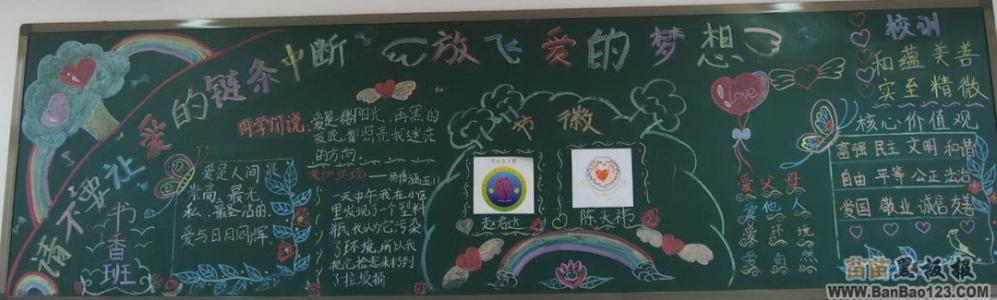 请不要让爱的链条中断
放飞爱的梦想
书香班
爱是人间最
崇高、最无
私、最圣洁的,
爱与日月同辉
同学们说:
爱是缕阳光,再黑的
夜晚,都照亮我迷茫
的方向。
爱护环境
一天中午我在小区
里发现了个塑料
瓶,我认为它污染
了环境,所以我
把它捡起来扔到
了垃圾桶
节徽
赵若达
陈天祎
Love
爱父母
爱他人
爱环境
爱自然
校训
和蕴美善
实至精微
核心价值观
富强 民主 文明 和谐
自由 平等 公正 法治
爱国 敬业 诚信 友善
苗苗黑板报
www.BanBao123.com